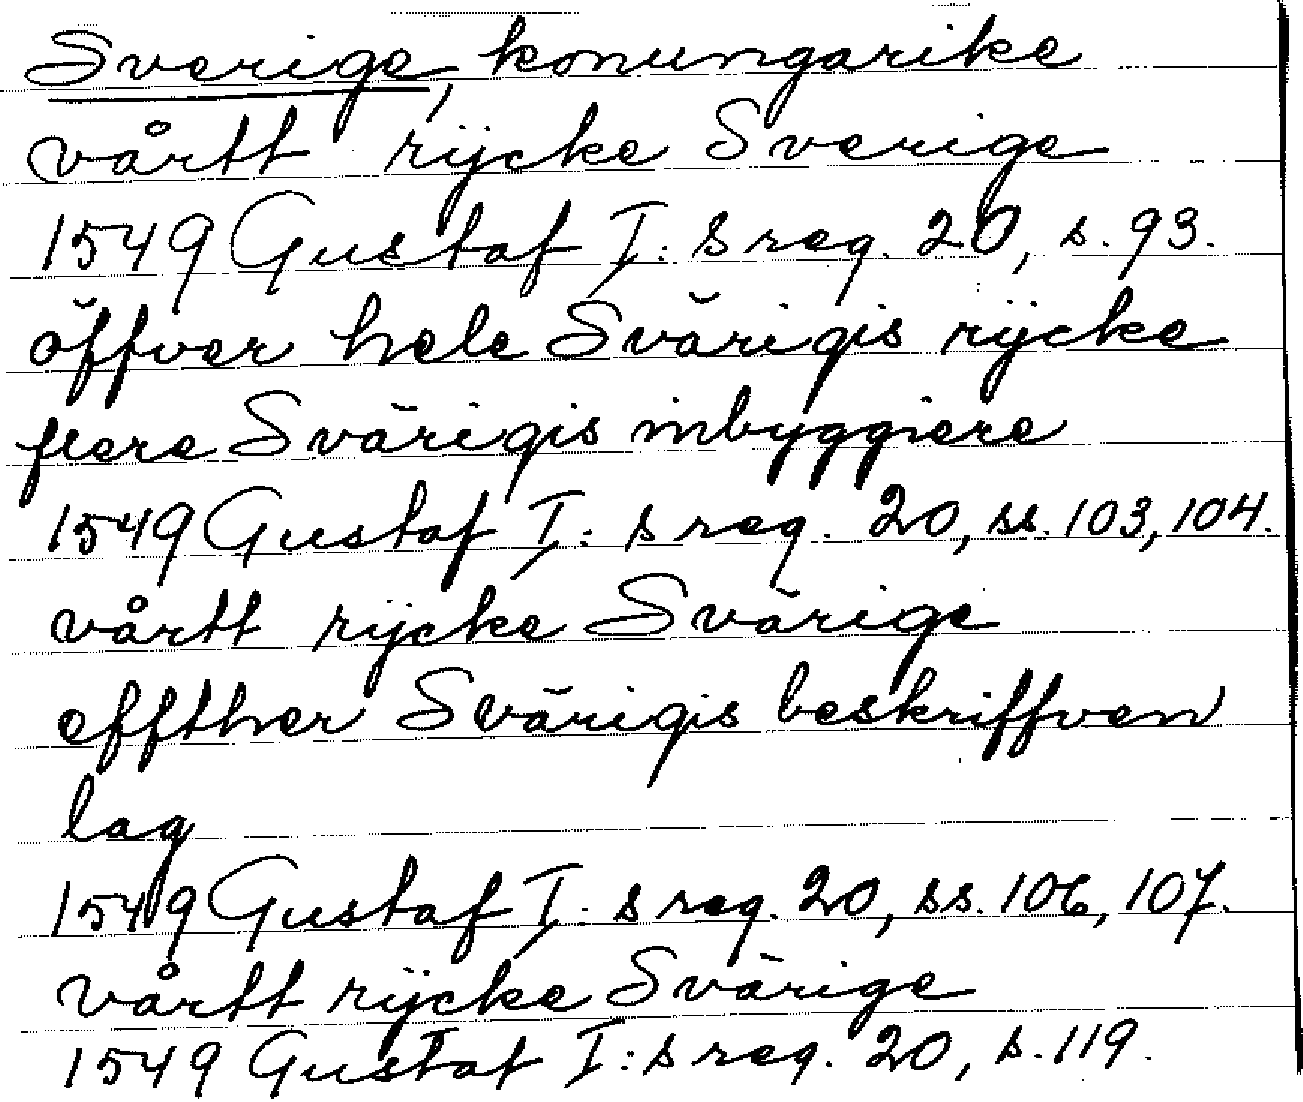 Sverige, konungarike
vårtt rÿcke Sverige
1549 Gustaf I: s reg. 20, s. 93.
öffver hele Svärigis rÿcke
flere Svärigis inbyggiere
1549 Gustaf I: s reg. 20, ss. 103, 104.
vårtt rÿcke Svärige
effther Svärigis beskriffven
lag
1549 Gustaf I: s reg. 20, ss. 106, 107.
vårtt rÿcke Svärige
1549 Gustaf I: s reg. 20, s. 119.